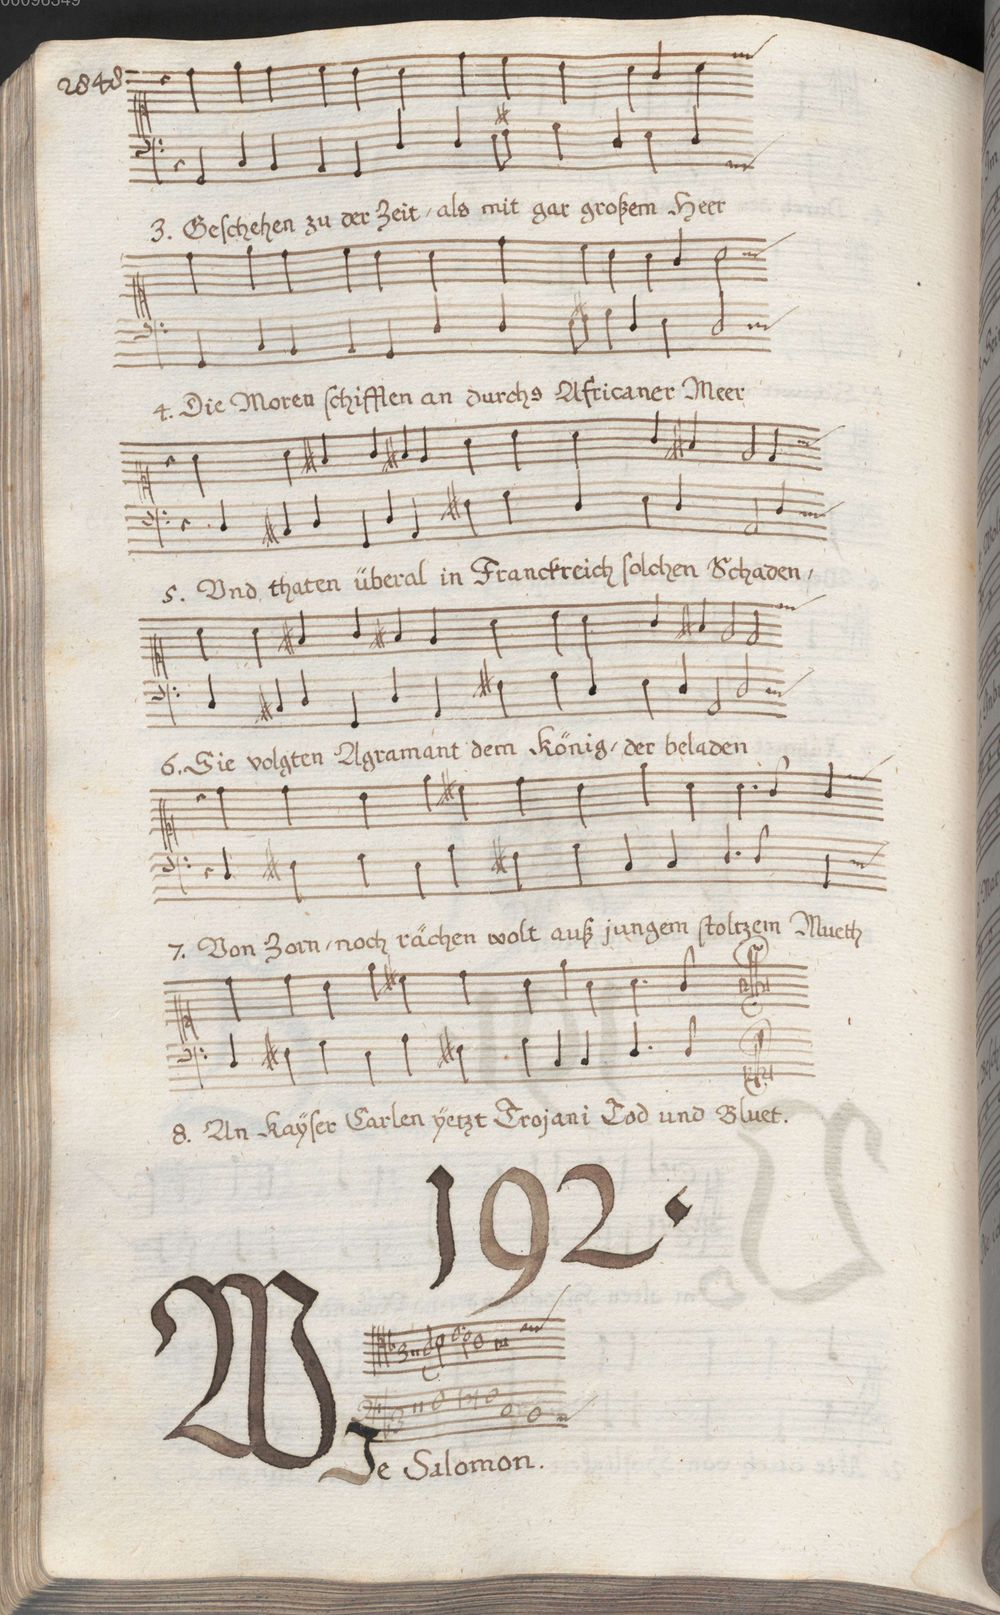 2848.
3. Geschehen zu der Zeit, als mit gar großem Heer
4. Die Moren schifften an durchs Africaner Meer
5. Vnd thaten überal in Franckreich solchen Schaden,
6. Sie volgten Agramant dem König, der beladen
7. Von Zorn, noch rächen wolt auß jungem stoltzem Mueth
8. An Kaÿser Carlen ÿetzt Trojani Tod und Bluet.
192.
WJe Salomon.